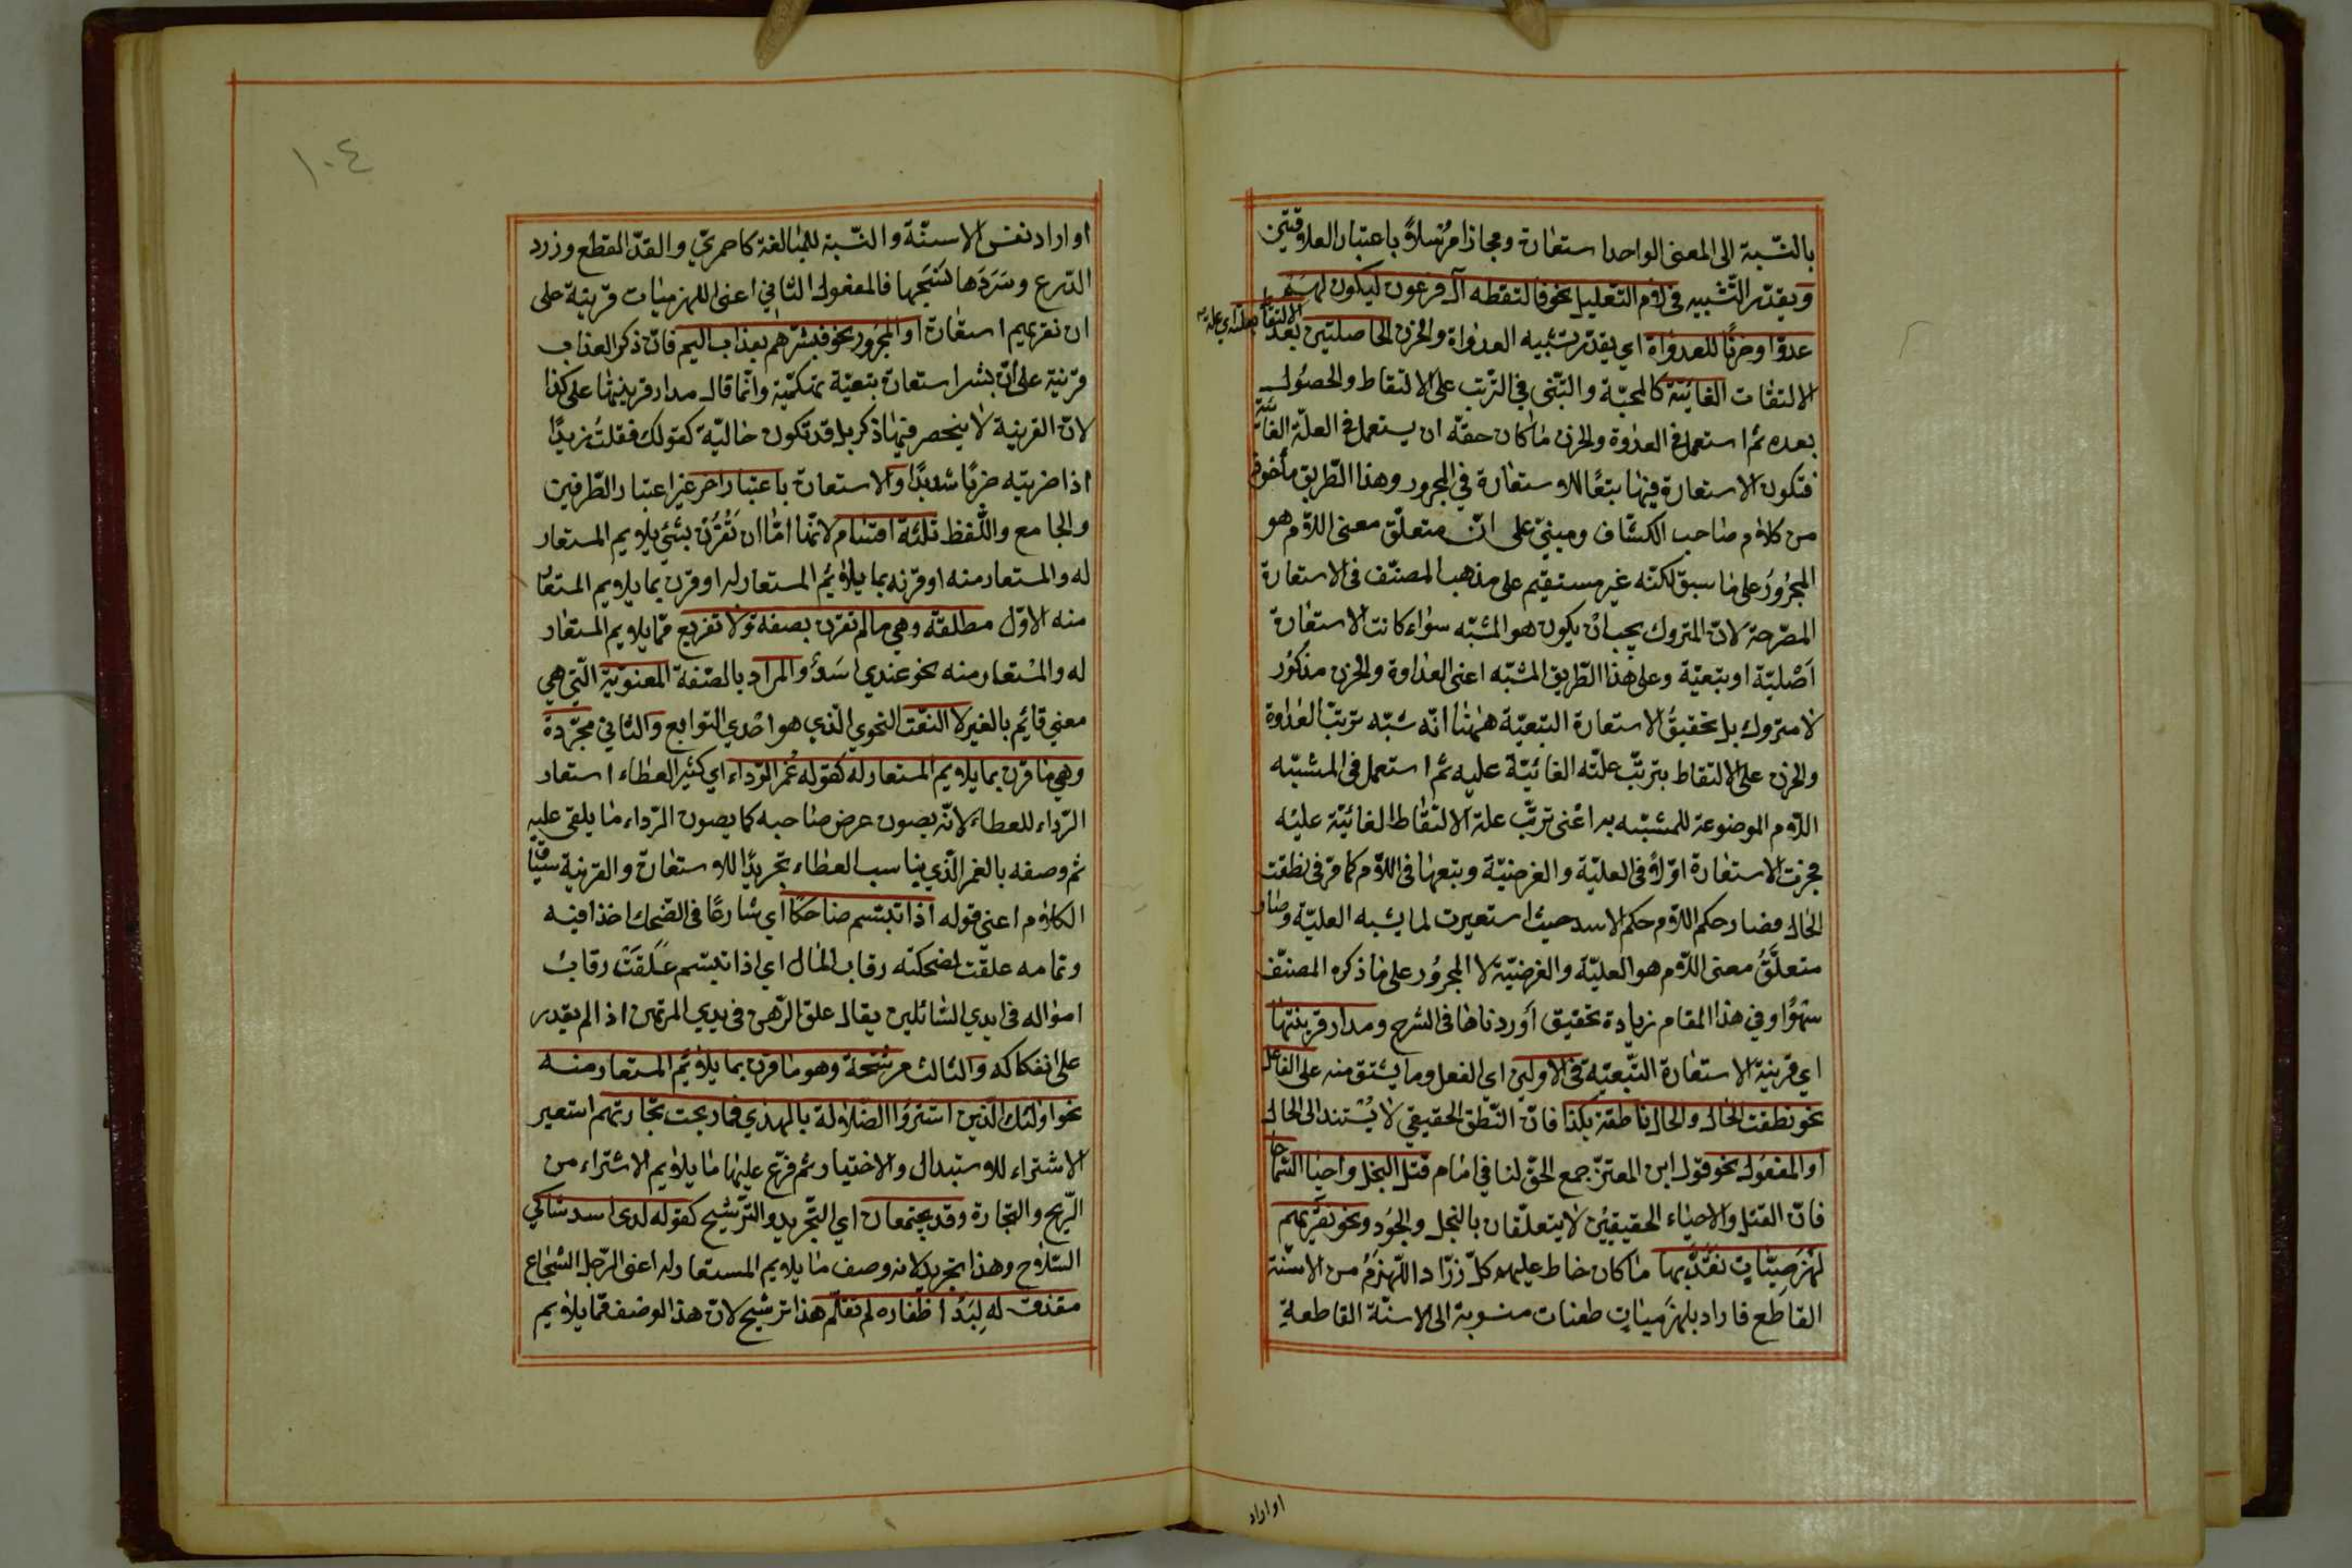 بالنّسبة الى المعنى الواحد استعارة ومجازا مرسلاً باعتبار العلاقتين
ويقدّر التّشبيه فى لام التّعليل نحو فالتقطه آل فرعون ليكون لهم
عدوّا وحزنًا للعداوة اي يقدّر تشبيه العداوة والحزن الحاصلتين بعد الالتقاط
الالتقات الغائيّة كالمحبّة والتبنّى في الترتب على الالتقاط والحصول
بعده ثم استعمل فى العداوة والحزن ماكان حقّه ان يستعمل فى العلّة الغائيّة
فتكون الاستعارة فيها تبعًا للاستعارة في المجرور وهذا الطّريق مأخوذ
من كلام صاحب الكشّاف ومبنىّ على انّ متعلّق معنى اللام هو
المجرُورُ على ما سبق لكنّه غير مستقيم على مذهب المصنّف فى الاستعارة
المصّرحة لانّ المتروك يجب انْ يكون هو المشبّه سواء كانت الاستعارة
اَصْليّة او تبعيّة وعلى هذا الطّريق المشبّه اعنى العداوة والحزن مذكوُر
لا متروك بل تحقيقُ الاستعارة التبعيّة ههُنا انّه شبّه ترتبّ العداوة
والحزن على الالتقاط بترتبّ علّته الغائيّة عليه ثم استعمل فى المشبّه
اللام الموضوعة للمشبّه به اعْنى ترتّب علة الالتقاط الغائيّة عليه
فجرت الاستعارة اوّلاً فى العليّة والغرضيّة وبتبعها فى اللام كما مّر فى نطقت
الحال فصار حكم اللام حكم الاسد حيث استعيرت لما يشبه العليّة وصار
متعلّقُ معنى اللام هو العليّة والغرضيّة لا المجرُور على ما ذكره المصنّف
سَهْوًا وفي هذا المقام زيادة تحقيق اَوردناها فى الشرح ومدار قرينتها
اي قرينة الاستعارة التّبعيّة فى الاوليَن اي الفعل وما يشتق منه على الفاعل
نحو نطقت الحال والحال ناطقة بكذا فانّ النّطق الحقيقي لا يُسْتند الى الحال
او المفعُول نحو قول ابن المعتزّ جمع الحقّ لنا في امَام قتل البخل واحيا السّماحا
فانّ القتل والاحياء الحقيقيّين لا يتعلّقان بالبخل والجُود ونحو نقريهم
لهْزَميّاتٍ نقدّ بها ماكان خاط عليهم كلّ زرّاد اللّهزمُ من الاسنّة
القاطع فاراد بلهزميات طعنات منسوبة الى الاسنّة القاطعة
او اراد
١٠٤
او اراد نفس الاسنّة والنّسبة للمبالغة كاحمريّ والقدّ القطع وزرد
الدّرع وسَرَدَها نَسَجَها فالمفعول الثّاني اعنى اللهزميات قرينة على
ان نقريهم استعارة او المجرُور نحو فبشّرهم بعذاب اليم فانّ ذكر العذاب
قرينة على انّ بشر استعارة تبعيّة تهكّميّة وانّما قال مدار قرينتها على كذا
لانّ القرينة لا ينحصر فيما ذكر بل قد تكون حاليّة كقولك فقلتُ زيدًا
اذا ضربته ضربًا شديدًا والاستعارة باعتبار اخر غير اعتبار الطّرفين
والجامع واللّفظ ثلثة اقسام لانّها امّا ان تُقْرَن بشئ يلايم المستعار
له والمستعار منه او قرنه بما يلائم المستعار له او قرن بما يلايم المستعار
منه الاوّل مطلقة وهي ما لم تقرن بصفة ولا تفريع ممّا يلايم المستعار
له والمْستعار منه نحو عندي اسَدٌ والمراد بالصّفة المعنويّة التّي هي
معنى قايم بالغير لا النّعت النحوي الّذي هو احْدي التوابع والثّاني مجرّدة
وهي ما قرن بما يلايم المستعار له كقوله غُمر الرّداء اي كثير العطاء استعار
الرّداء للعطاء لانّه يصون عرض صاحبه كما يصون الرّداء ما يلقى عليه
ثم وصفه بالغمر الّذي يناسب العطاء تجريدًا للاستعارة والقرينة سياق
الكلام اعنى قوله اذا تبسّم ضاحكًا اي شارعًا فى الضّحك اخذا فيه
وتمامه علقت لضحكته رقاب المال اي اذا تبسّم عَلقَتْ رقابُ
امواله فى ايدي السّائلين يقال علق الرّهن فى يدي المرتهن اذا لم يقدر
على انفكاكه والثالث مرشّحة وهو ما قرن بما يلايم المستعار منه
نحو اولئك الّذين اشترَوُا الضّلالة بالهدي فما ربحت تجارتهم استعير
الاشتراء للاستبدال والاختيار ثم فرّع عليها ما يلايم الاشتراء من
الرّبح والتجارة وقد يجتمعان اي التّجريد والترشيح كقوله لدى اسد شاكي
السّلاح وهذا تجريد لانه وصف ما يلايم المستعار له اعنى الرّجل الشّجاع
مقذف له لِبَدُ اظفاره لم تقلّم هذا ترشيح لانّ هذا الوصف ممّا يلايم